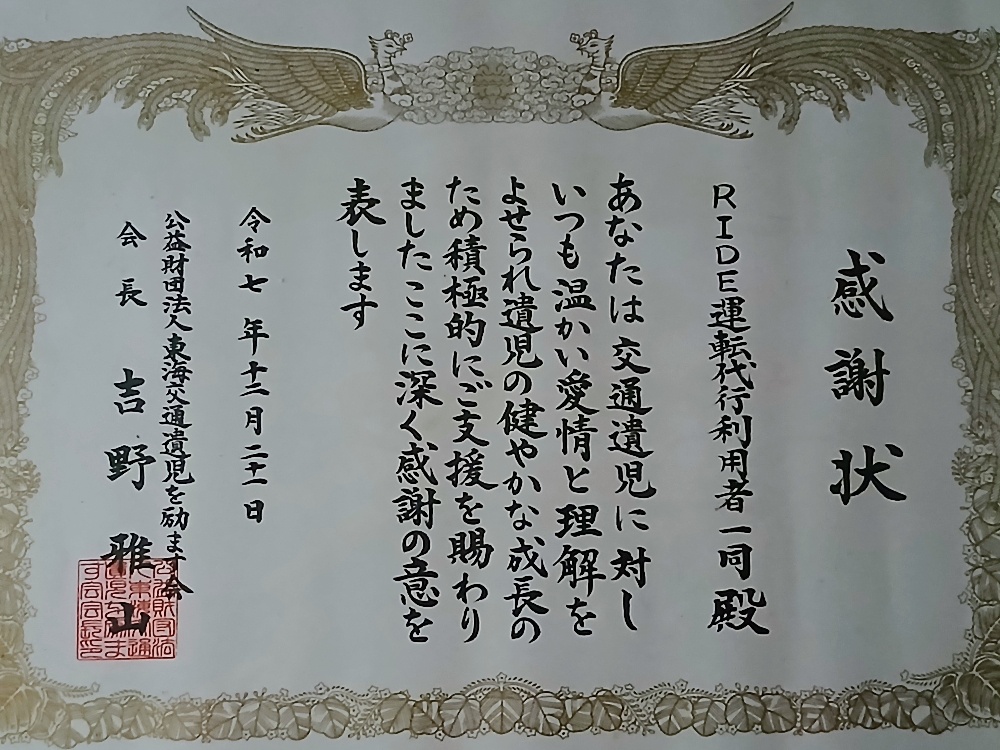 感謝状
RIDE運転代行利用者一同殿
あなたは交通遺児に対し
いつも温かい愛情と理解を
よせられ遺児の健やかな成長の
ため積極的にご支援を賜わり
ましたここに深く感謝の意を
表します
令和七年十二月二十一日
公益財団法人東海交通遺児を励ます会
会長 吉野雅山